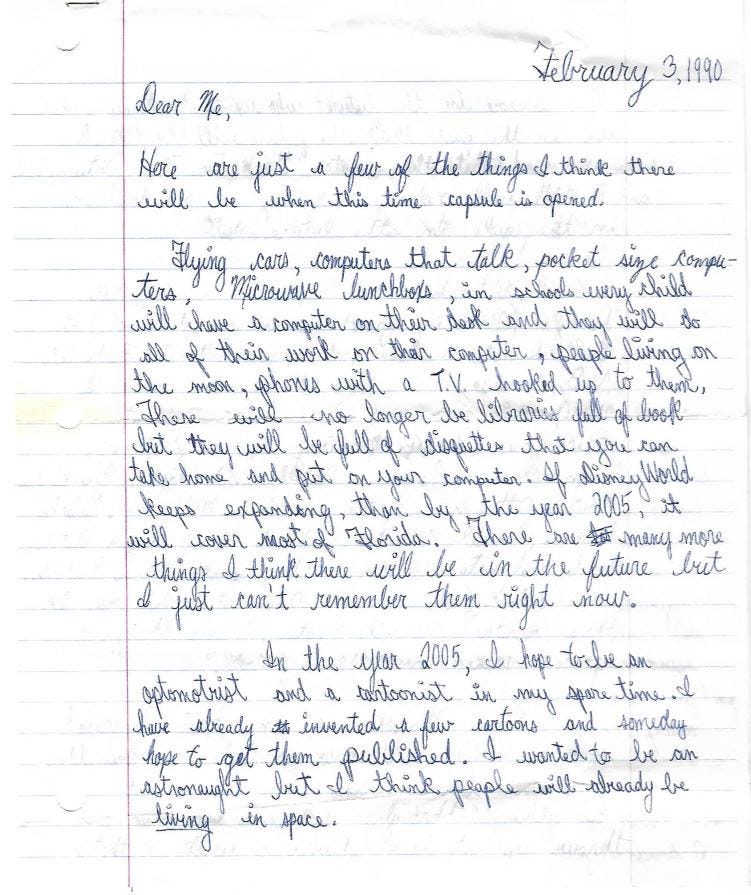 February 3, 1990
Dear Me,
Here are just a few of the things I think there
will be when this time capsule is opened.
Flying cars, computers that talk, pocket size compu-
ters, Microwave lunchboxs, in schools every child
will have a computer on their desk and they will do
all of their work on their computer, people living on
the moon, phones with a T.V. hooked up to them,
There will no longer be libraries full of book
but they will be full of disquettes that you can
take home and put on your computer. If Disney World
keeps expanding, than by the year 2005, it
will cover most of Florida. There are many more
things I think there will be in the future but
I just can't remember them right now.
In the year 2005, I hope to be an
optomotrist and a cartoonist in my spare time. I
have already invented a few cartoons and someday
hope to get them published. I wanted to be an
astronaught but I think people will already be
living in space.